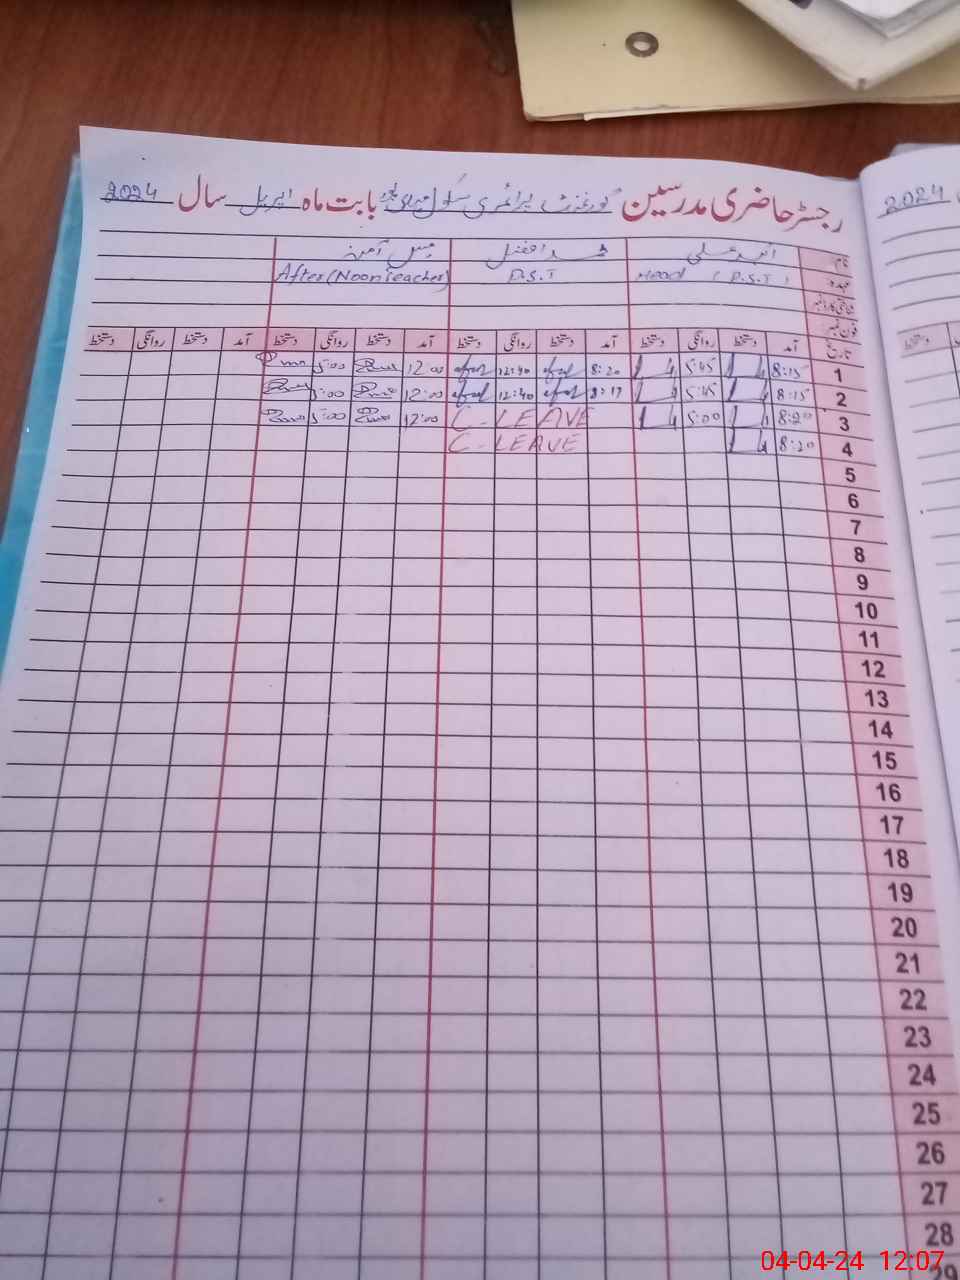 رجسٹر حاضری مدرسین گورنمنٹ پرائمری سکول بابت ماہ اپریل سال 2024
نام محمد افضل مس آمنہ
عہدہ Head (P.S.T) P.S.T After(Noon Teacher)
شناختی کارڈ نمبر
فون نمبر
تاریخ آمد دستخط روانگی دستخط آمد دستخط روانگی دستخط آمد دستخط روانگی دستخط آمد دستخط روانگی دستخط
1 8:15 5:45 8:20 12:40 12:00 5:00
2 8:15 5:45 8:17 12:40 12:00 5:00
3 8:20 5:00 C-LEAVE 12:00 5:00
4 8:20 C-LEAVE
5
6
7
8
9
10
11
12
13
14
15
16
17
18
19
20
21
22
23
24
25
26
27
28
29
2024
دستخط
04-04-24 12:07